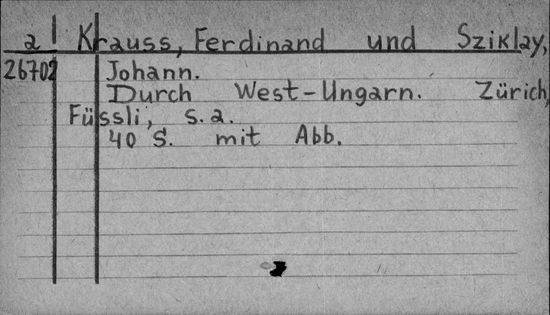 a Krauss, Ferdinand und Sziklay,
26702 Johann.
Durch West-Ungarn. Zürich,
Füssli, s.a.
40 S. mit Abb.